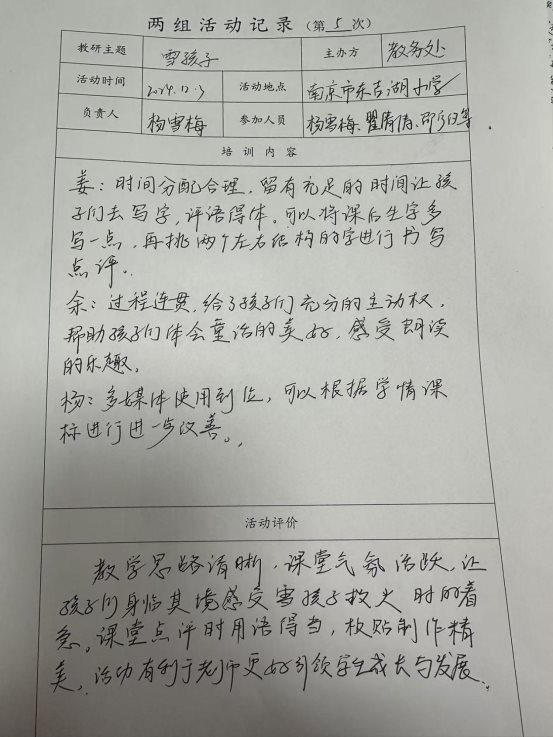 两组活动记录（第5次）
教研主题 雪孩子 主办方 教务处
活动时间 2024.12.3 活动地点 南京市东古湖小学
负责人 杨雪梅 参加人员 杨雪梅、瞿倩倩、邵 等
培训内容
姜：时间分配合理，留有充足的时间让孩
子们去写字，评语得体。可以将课后生字多
写一点，再挑两个左右结构的字进行书写
点评。
余：过程连贯，给了孩子们充分的主动权，
帮助孩子们体会童话的美好，感受朗读
的乐趣。
杨：多媒体使用到位，可以根据学情课
标进行进一步改善。
活动评价
教学思路清晰，课堂气氛活跃，让
孩子们身临其境感受雪孩子救火时的着
急。课堂点评时用语得当，板贴制作精
美，活动有利于老师更好引领学生成长与发展。